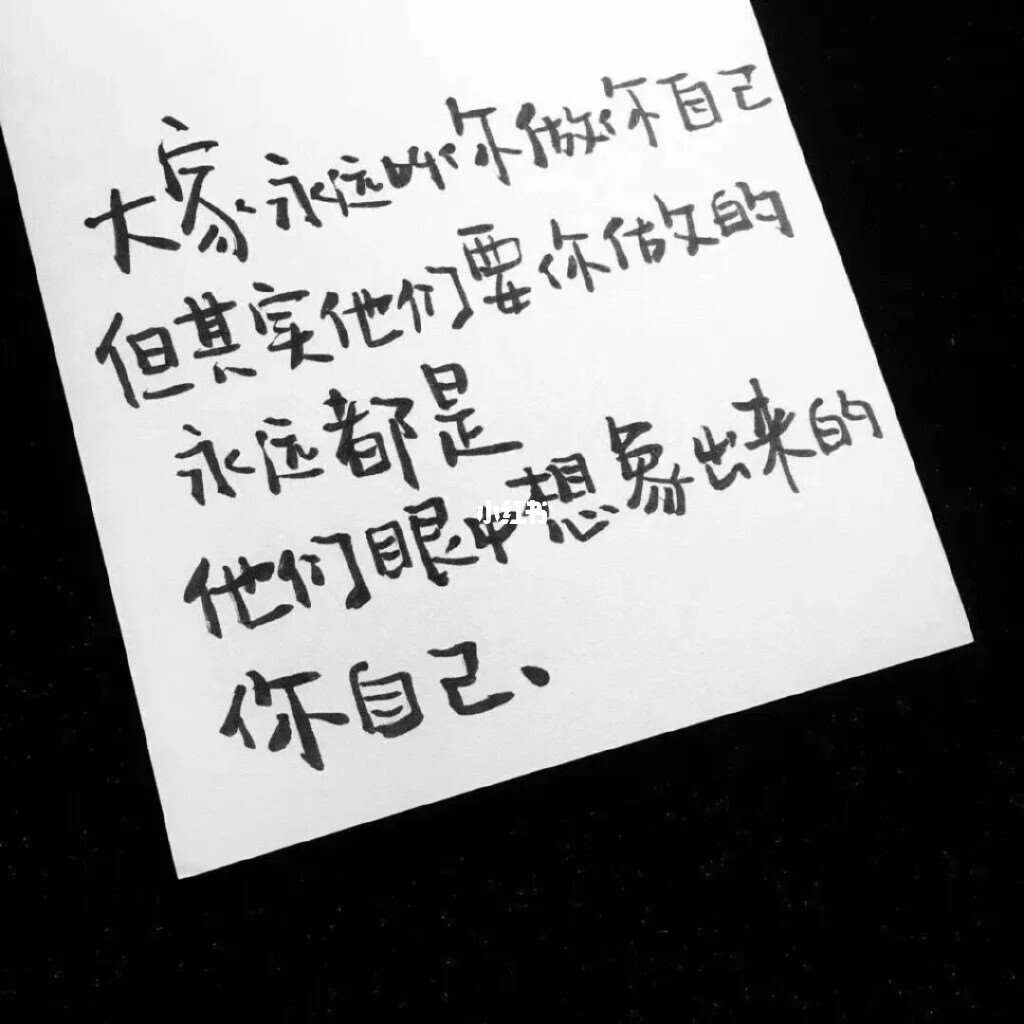 大家永远叫你做你自己
但其实他们要你做的
永远都是
他们眼中想象出来的
小红书
你自己、